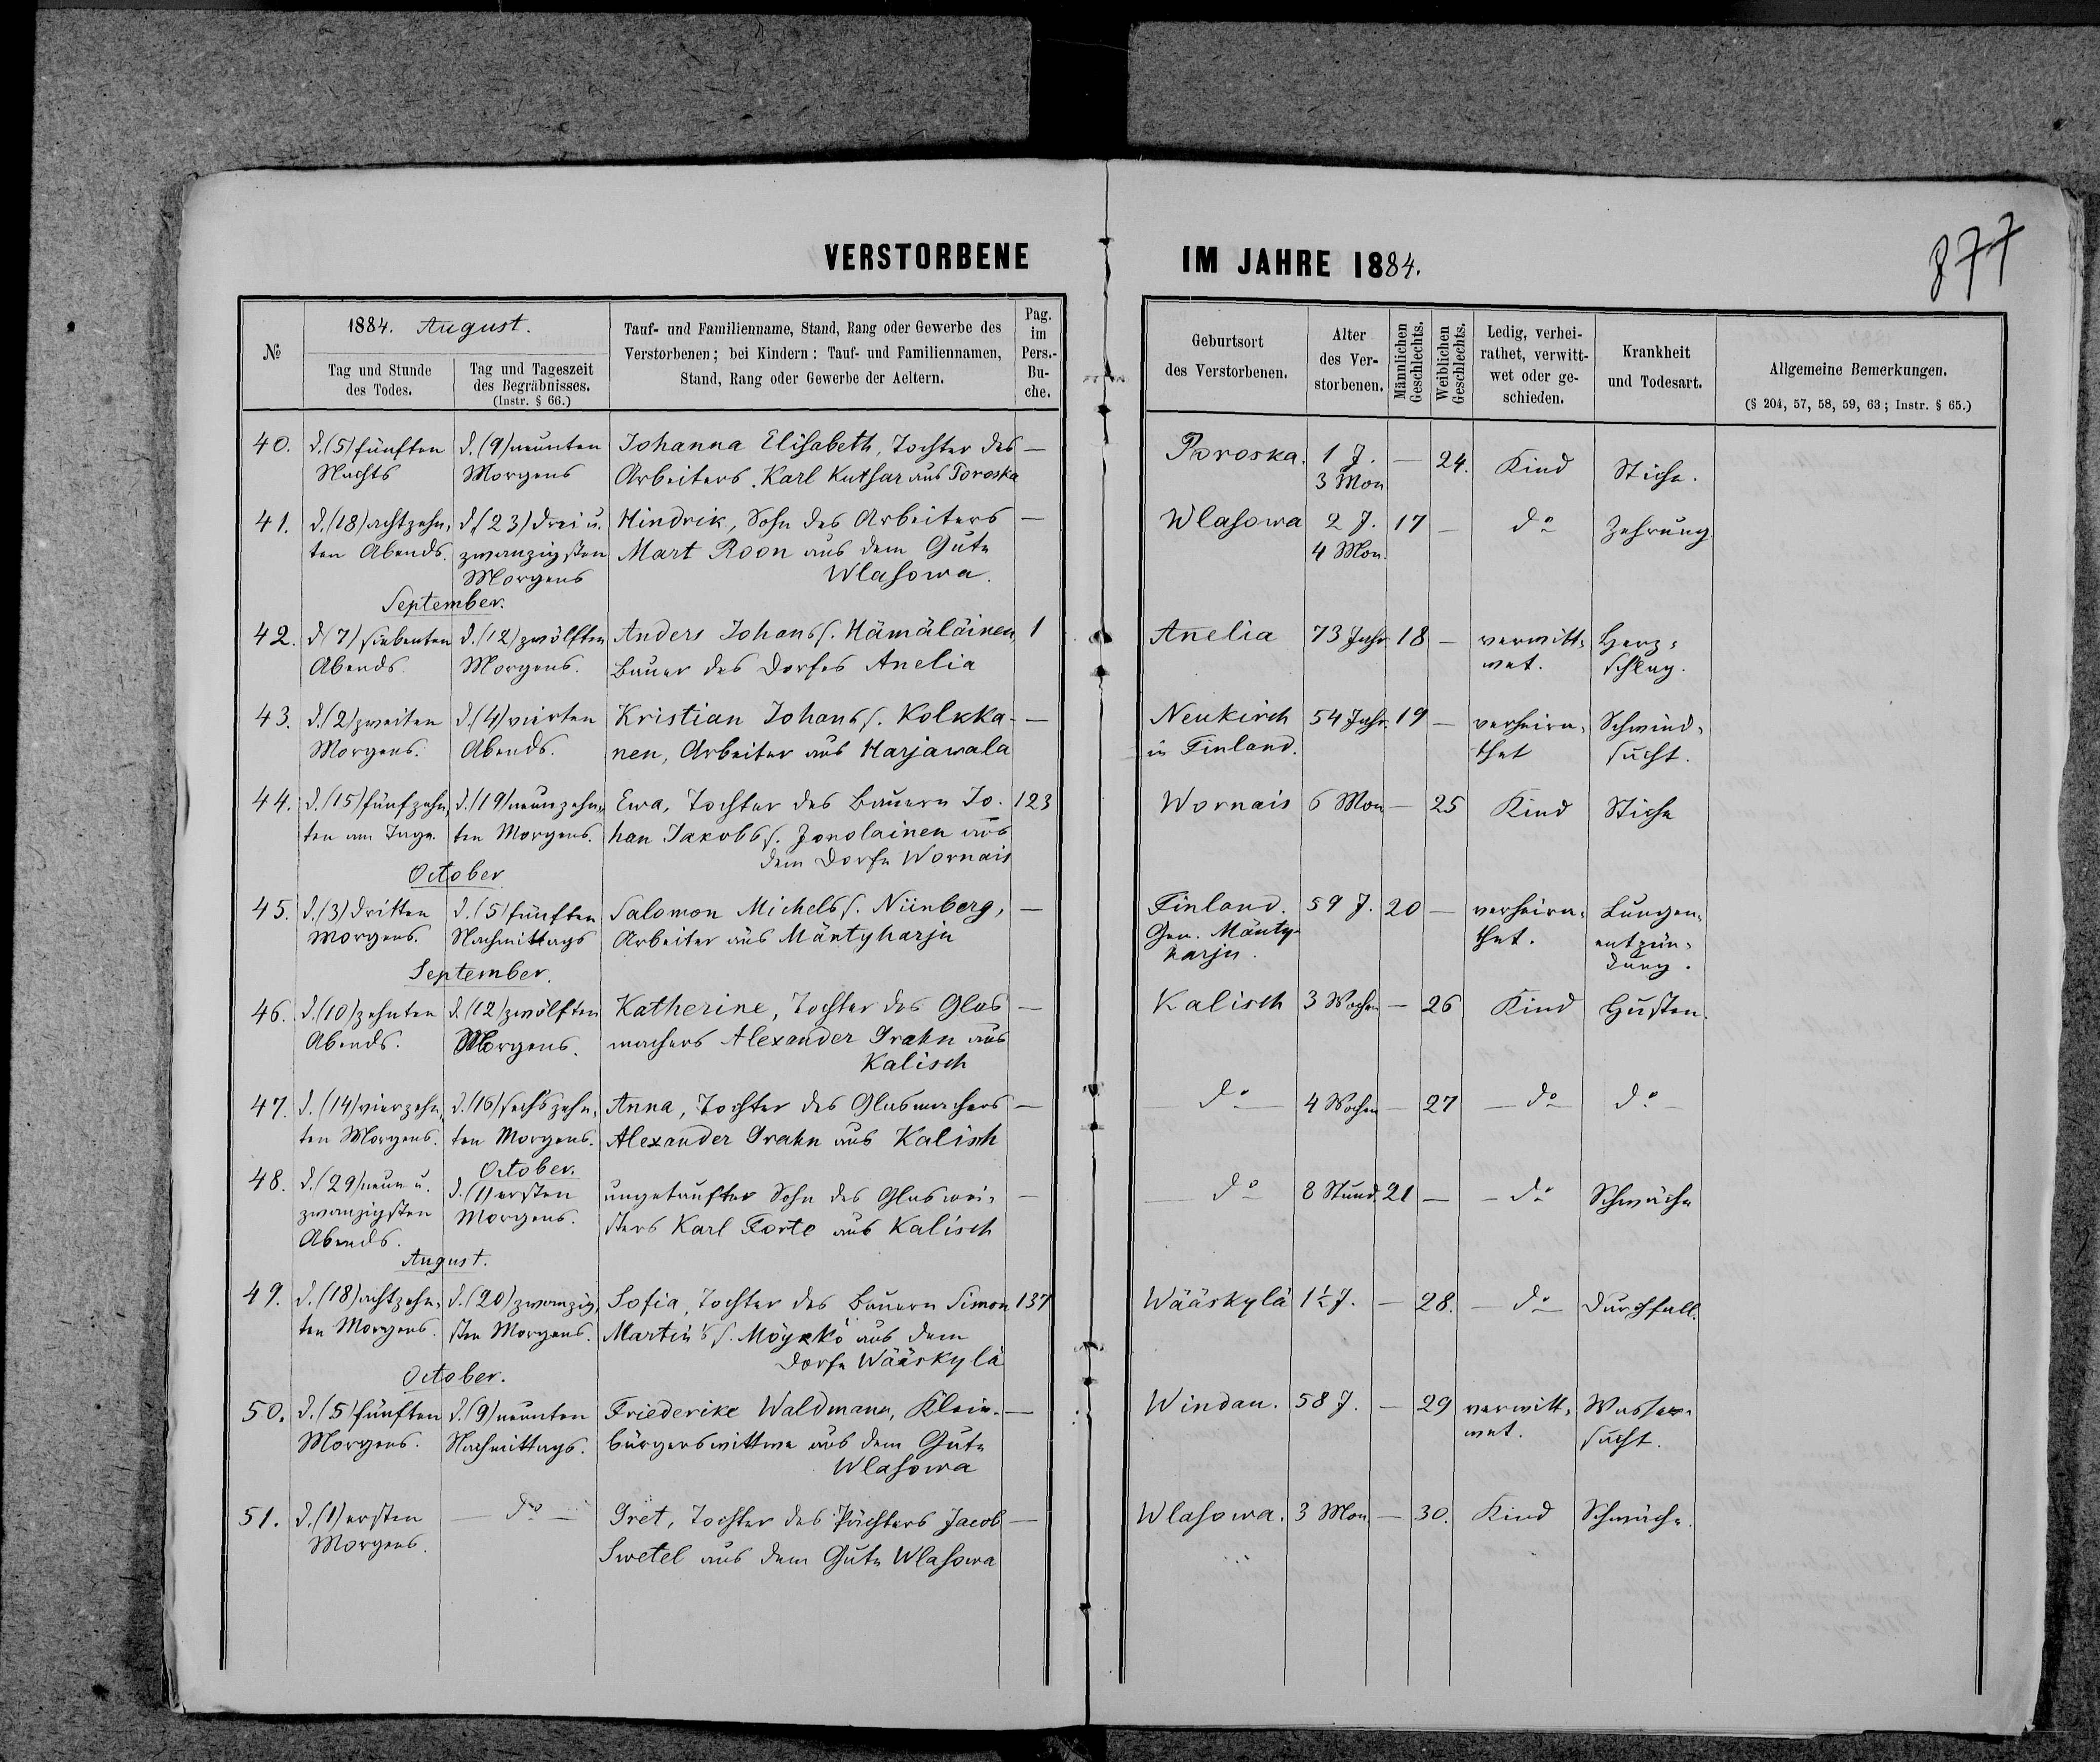 VERSTORBENE
IM JAHRE 1884.
877
№
1884. August.
Tag und Stunde
des Todes.
Tag und Tageszeit
des Begräbnisses.
(Instr. § 66.)
Tauf- und Familienname, Stand, Rang oder Gewerbe des
Verstorbenen; bei Kindern: Tauf- und Familiennamen,
Stand, Rang oder Gewerbe der Aeltern.
Pag.
im
Pers.-
Bu-
che.
Geburtsort
des Verstorbenen.
Alter
des Ver-
storbenen.
Männlichen
Geschlechts.
Weiblichen
Geschlechts.
Ledig, verhei-
rathet, verwitt-
wet oder ge-
schieden.
Krankheit
und Todesart.
Allgemeine Bemerkungen.
(§ 204, 57, 58, 59, 63; Instr. § 65.)
40. d. (5) fünften d. (9) neunten Johanna Elisabeth, Tochter des — Poroska. 1 J. — 24. Kind Stiche.
Nachts Morgens Arbeiters Karl Kuthar aus Poroska 3 Mon.
41. d. (18) achtzehn, d. (23) drei u. Hindrik, Sohn des Arbeiters — Wlasowa 2 J. 17 — do Zehrung
ten Abends. zwanzigsten Mart Roon aus dem Gute 4 Mon.
Morgens Wlasowa.
September.
42. d (7) siebenten d. (12) zwölften Anders Johans s. Hämäläinen, 1 Anelia 73 Jahr 18 — verwitt- Herz-
Abends. Morgens. Bauer des Dorfes Anelia wet. schlag.
43. d. (2) zweiten d. (4) vierten Kristian Johans s. Kolkka- — Neukirch 54 Jahr. 19 — verheira- Schwind-
Morgens. Abends. nen, Arbeiter aus Harjawala in Finland. thet sucht.
44. d. (15) fünfzehn, d. (19) neunzehn, Ewa, Tochter des Bauern Jo- 123 Wornais 6 Mon — 25 Kind Stiche
ten am Tage. ten Morgens. han Jakobs s. aus
dem Dorfe Wornais
October
45. d. (3) dritten d. (5) fünften Salomon Michels s. Niinberg, — Finland. 59 J. 20 — verheira- Lungen-
Morgens. Nachmittags Arbeiter aus Mäntyharju Gem. Mänty- thet. entzün-
harju. dung.
September.
46. d. (10) zehnten d. (12) zwölften Katherine, Tochter des Glas — Kalisch 3 Wochen — 26 Kind Husten.
Abends. Morgens. machers Alexander Grahn aus
Kalisch
47. d. (14) vierzehn, d. (16) sechszehn, Anna, Tochter des Glasmachers — do 4 Wochen — 27 — do — do —
ten Morgens. ten Morgens. Alexander Grahn aus Kalisch
October.
48. d. (29) neun u. d. (1) ersten ungetaufter Sohn des Glasmei- — do 8 Stund. 21 — do Schwäche
zwanzigsten Morgens. sters Karl Forte aus Kalisch
Abends.
August.
49. d. (18) achtzehn, d. (20) zwanzig, Sofia, Tochter des Bauern Simon 137 Wääskylä 1½ J. — 28. — do Durchfall.
ten Morgens. sten Morgens. Martin's s. Möykkö aus dem
Dorfe Wääskylä
October.
50. d. (5) fünften d. (9) neunten Friederike Waldmann, Klein- — Windau. 58 J. — 29 verwitt- Wasser-
Morgens. Nachmittags. bürgerswittwe aus dem Gute wet. sucht.
Wlasowa
51. d. (1) ersten — do — Gret, Tochter des Pächters Jacob — Wlasowa. 3 Mon — 30. Kind Schwäche.
Morgens. Swetel aus dem Gute Wlasowa